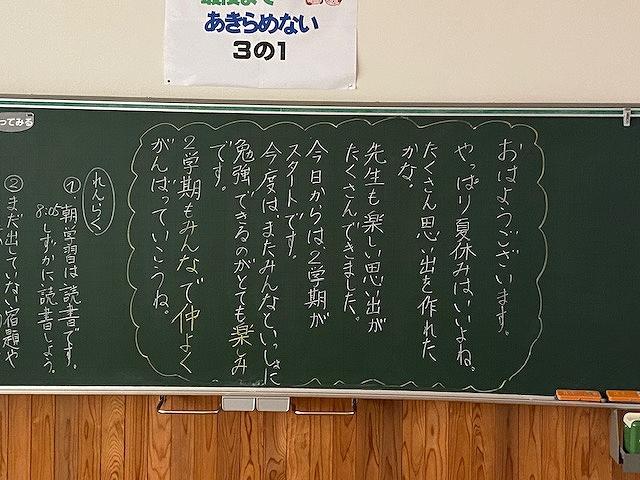 あきらめない
3の1
ってみる
おはようございます。
やっぱり夏休みはいいよね。
たくさん思い出を作れた
かな。
先生も楽しい思い出が
たくさんできました。
今日からは、2学期が
スタートです。
今度は、またみんなといっしょに
勉強できるのがとても楽しみ
です。
2学期もみんなで仲よく
がんばっていこうね。
れんらく
①朝学習は読書です。
8:05しずかに読書しよう。
②まだ出していない宿題や